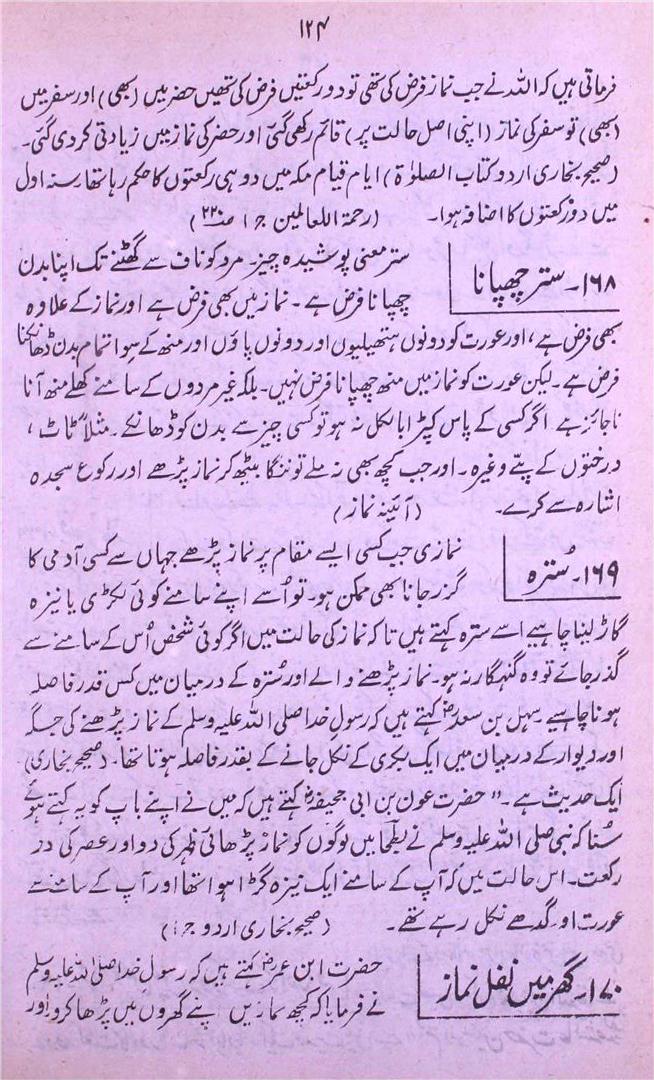 ۱۲۴
فرماتی ہیں کہ اللہ نے جب نماز فرض کی تھی تو دو رکعتیں فرض کی تھیں حضر میں (بھی) اور سفر میں
(بھی) تو سفر کی نماز (اپنی اصل حالت پر) قائم رکھی گئی اور حضر کی نماز میں زیادتی کر دی گئی۔
(صحیح بخاری اردو کتاب الصلوٰۃ) ایام قیام مکہ میں دو ہی رکعتوں کا حکم رہا تھا سنہ اول
میں دو رکعتوں کا اضافہ ہوا۔ (رحمۃ اللعالمین ج ۱ صـ۲۲۰)
۱۶۸۔ ستر چھپانا
ستر معنی پوشیدہ چیز۔ مرد کو ناف سے گھٹنے تک اپنا بدن
چھپانا فرض ہے۔ نماز میں بھی فرض ہے اور نماز کے علاوہ
بھی فرض ہے، اور عورت کو دونوں ہتھیلیوں اور دونوں پاؤں اور منھ کے سوا تمام بدن ڈھانکنا
فرض ہے۔ لیکن عورت کو نماز میں منھ چھپانا فرض نہیں۔ بلکہ غیر مردوں کے سامنے کھلے منھ آنا
ناجائز ہے اگر کسی کے پاس کپڑا بالکل نہ ہو تو کسی چیز سے بدن کو ڈھانکے۔ مثلاً ٹاٹ،
درختوں کے پتے وغیرہ۔ اور جب کچھ بھی نہ ملے تو ننگا بیٹھ کر نماز پڑھے اور رکوع سجدہ
اشارہ سے کرے۔ (آئینۂ نماز)
۱۶۹۔ سُترہ
نمازی جب کسی ایسے مقام پر نماز پڑھے جہاں سے کسی آدمی کا
گزر جانا بھی ممکن ہو۔ تو اُسے اپنے سامنے کوئی لکڑی یا نیزہ
گاڑ لینا چاہیے اسے سترہ کہتے ہیں تاکہ نماز کی حالت میں اگر کوئی شخص اُس کے سامنے سے
گذر جائے تو وہ گنہگار نہ ہو۔ نماز پڑھنے والے اور سُترہ کے درمیان میں کس قدر فاصلہ
ہونا چاہیے سہل بن سعدؓ کہتے ہیں کہ رسولِ خدا صلی اللہ علیہ وسلم کے نماز پڑھنے کی جگہ
اور دیوار کے درمیان میں ایک بکری کے نکل جانے کے بقدر فاصلہ ہوتا تھا۔ (صحیح بخاری)
ایک حدیث ہے۔ " حضرت عون بن ابی جحیفہؓ کہتے ہیں کہ میں نے اپنے باپ کو یہ کہتے ہوئے
سُنا کہ نبی صلی اللہ علیہ وسلم نے بطحا میں لوگوں کو نماز پڑھائی ظہر کی دو اور عصر کی دو
رکعت۔ اس حالت میں کہ آپ کے سامنے ایک نیزہ گڑا ہوا تھا اور آپ کے سامنے سے
عورت اور گدھے نکل رہے تھے۔ (صحیح بخاری اردو ج ۱)
۱۷۰۔ گھر میں نفل نماز
حضرت ابن عمرؓ کہتے ہیں کہ رسول خدا صلی اللہ علیہ وسلم
نے فرمایا کہ کچھ نمازیں اپنے گھروں میں پڑھا کرو اور